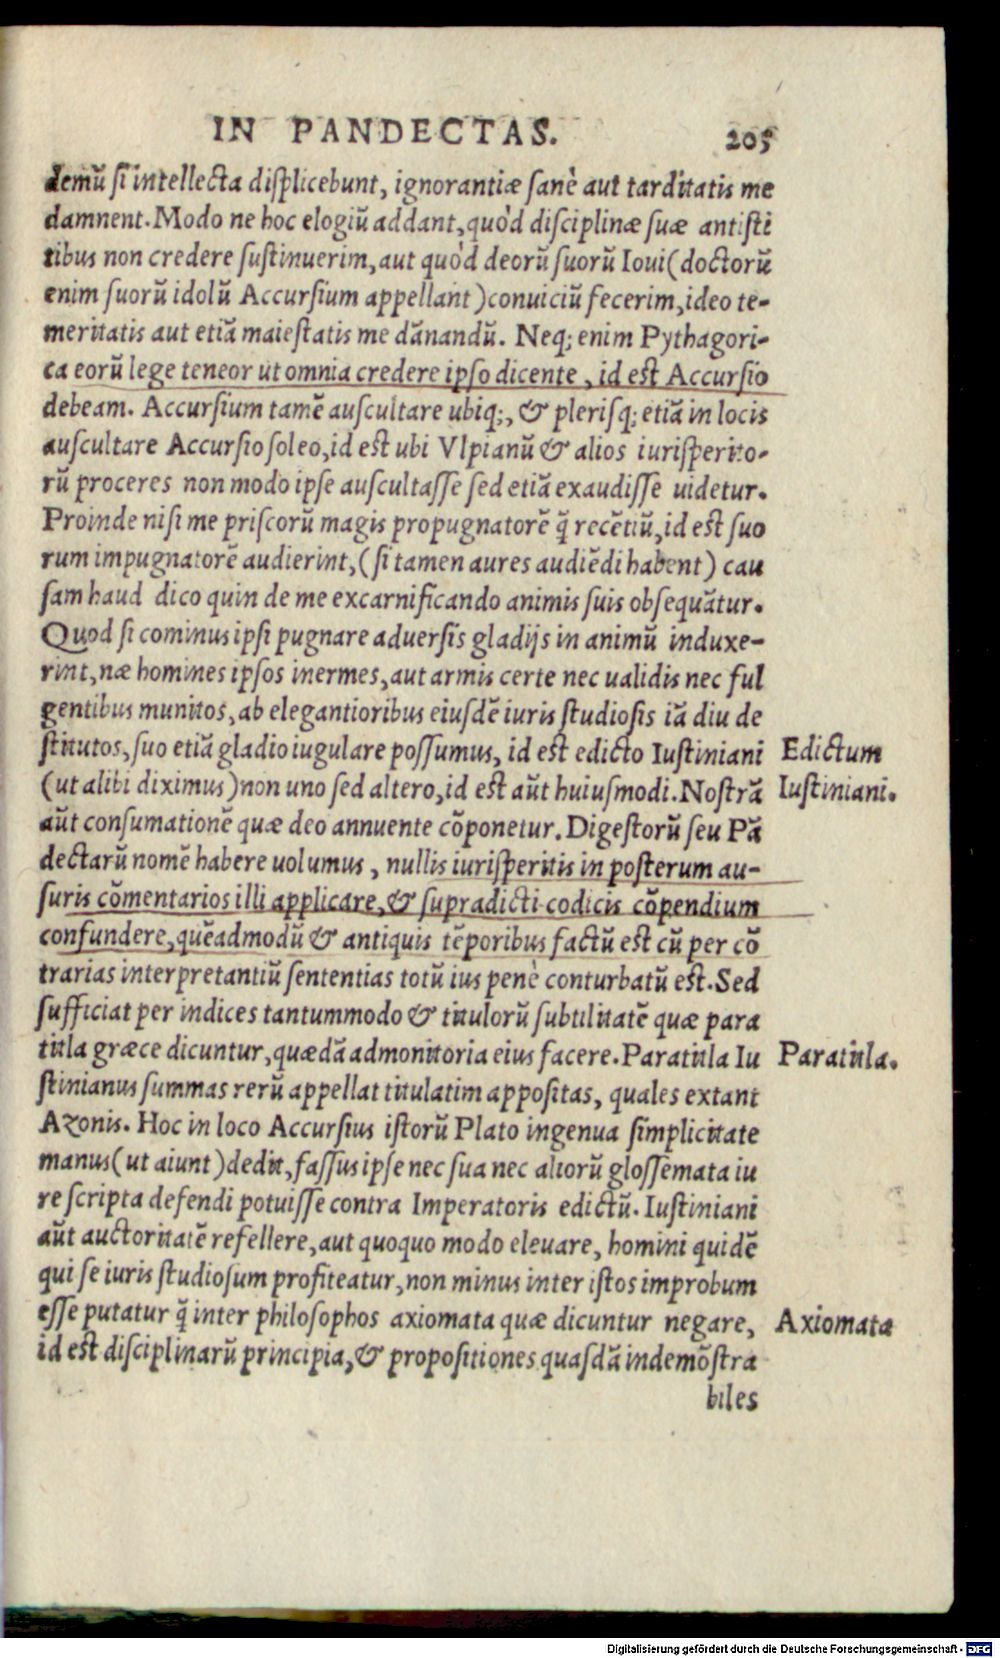 IN PANDECTAS. 205
demũ si intellecta displicebunt, ignorantiæ sanè aut tarditatis me
damnent. Modo ne hoc elogiũ addant, quòd disciplinæ suæ antisti
tibus non credere sustinuerim, aut quòd deorũ suorũ Ioui (doctorũ
enim suorũ idolũ Accursium appellant) conuiciũ fecerim, ideo te-
meritatis aut etiã maiestatis me dãnandũ. Neq; enim Pythagori-
ca eorũ lege teneor ut omnia credere ipso dicente, id est Accursio
debeam. Accursium tamẽ auscultare ubiq;, & plerisq; etiã in locis
auscultare Accursio soleo, id est ubi Vlpianũ & alios iurisperito-
rũ proceres non modo ipse auscultasse sed etiã exaudisse uidetur.
Proinde nisi me priscorũ magis propugnatorẽ q̃ recẽtiũ, id est suo
rum impugnatorẽ audierint, (si tamen aures audiẽdi habent) cau
sam haud dico quin de me excarnificando animis suis obsequãtur.
Quod si cominus ipsi pugnare aduersis gladijs in animũ induxe-
rint, næ homines ipsos inermes, aut armis certe nec ualidis nec ful
gentibus munitos, ab elegantioribus eiusdẽ iuris studiosis iã diu de
stitutos, suo etiã gladio iugulare possumus, id est edicto Iustiniani
Edictum
(ut alibi diximus) non uno sed altero, id est aũt huiusmodi. Nostrã
Iustiniani.
aũt consumationẽ quæ deo annuente cõponetur. Digestorũ seu Pã
dectarũ nomẽ habere uolumus, nullis iurisperitis in posterum au-
suris cõmentarios illi applicare, & supradicti codicis cõpendium
confundere, quẽadmodũ & antiquis tẽporibus factũ est cũ per cõ
trarias interpretantiũ sententias totũ ius penè conturbatũ est. Sed
sufficiat per indices tantummodo & titulorũ subtilitatẽ quæ para
titla græce dicuntur, quædã admonitoria eius facere. Paratitla Iu
Paratitla.
stinianus summas rerũ appellat titulatim appositas, quales extant
Azonis. Hoc in loco Accursius istorũ Plato ingenua simplicitate
manus (ut aiunt) dedit, fassus ipse nec sua nec aliorũ glossemata iu
re scripta defendi potuisse contra Imperatoris edictũ. Iustiniani
aũt auctoritatẽ refellere, aut quoquo modo eleuare, homini quidẽ
qui se iuris studiosum profiteatur, non minus inter istos improbum
esse putatur q̃ inter philosophos axiomata quæ dicuntur negare,
Axiomata
id est disciplinarũ principia, & propositiones quasdã indemõstra
biles
Digitalisierung gefördert durch die Deutsche Forschungsgemeinschaft - DFG